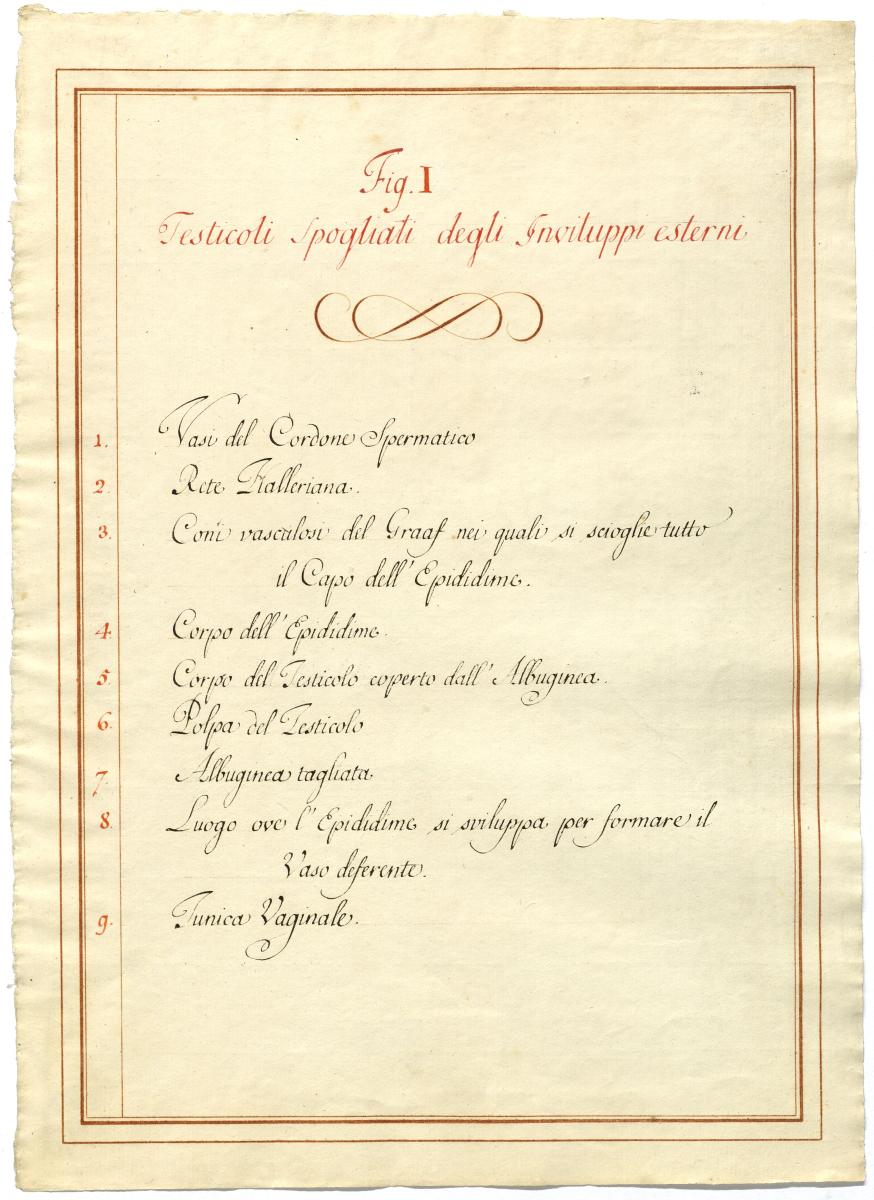 Fig. I
Testicoli Spogliati degli Inviluppi esterni
1. Vasi del Cordone Spermatico
2. Rete Halleriana.
3. Coni vasculosi del Graaf nei quali si scioglie tutto
il Capo dell'Epididime.
4. Corpo dell'Epididime.
5. Corpo del Testicolo coperto dall'Albuginea.
6. Polpa del Testicolo
7. Albuginea tagliata
8. Luogo ove l'Epididime si sviluppa per formare il
Vaso deferente.
9. Tunica Vaginale.